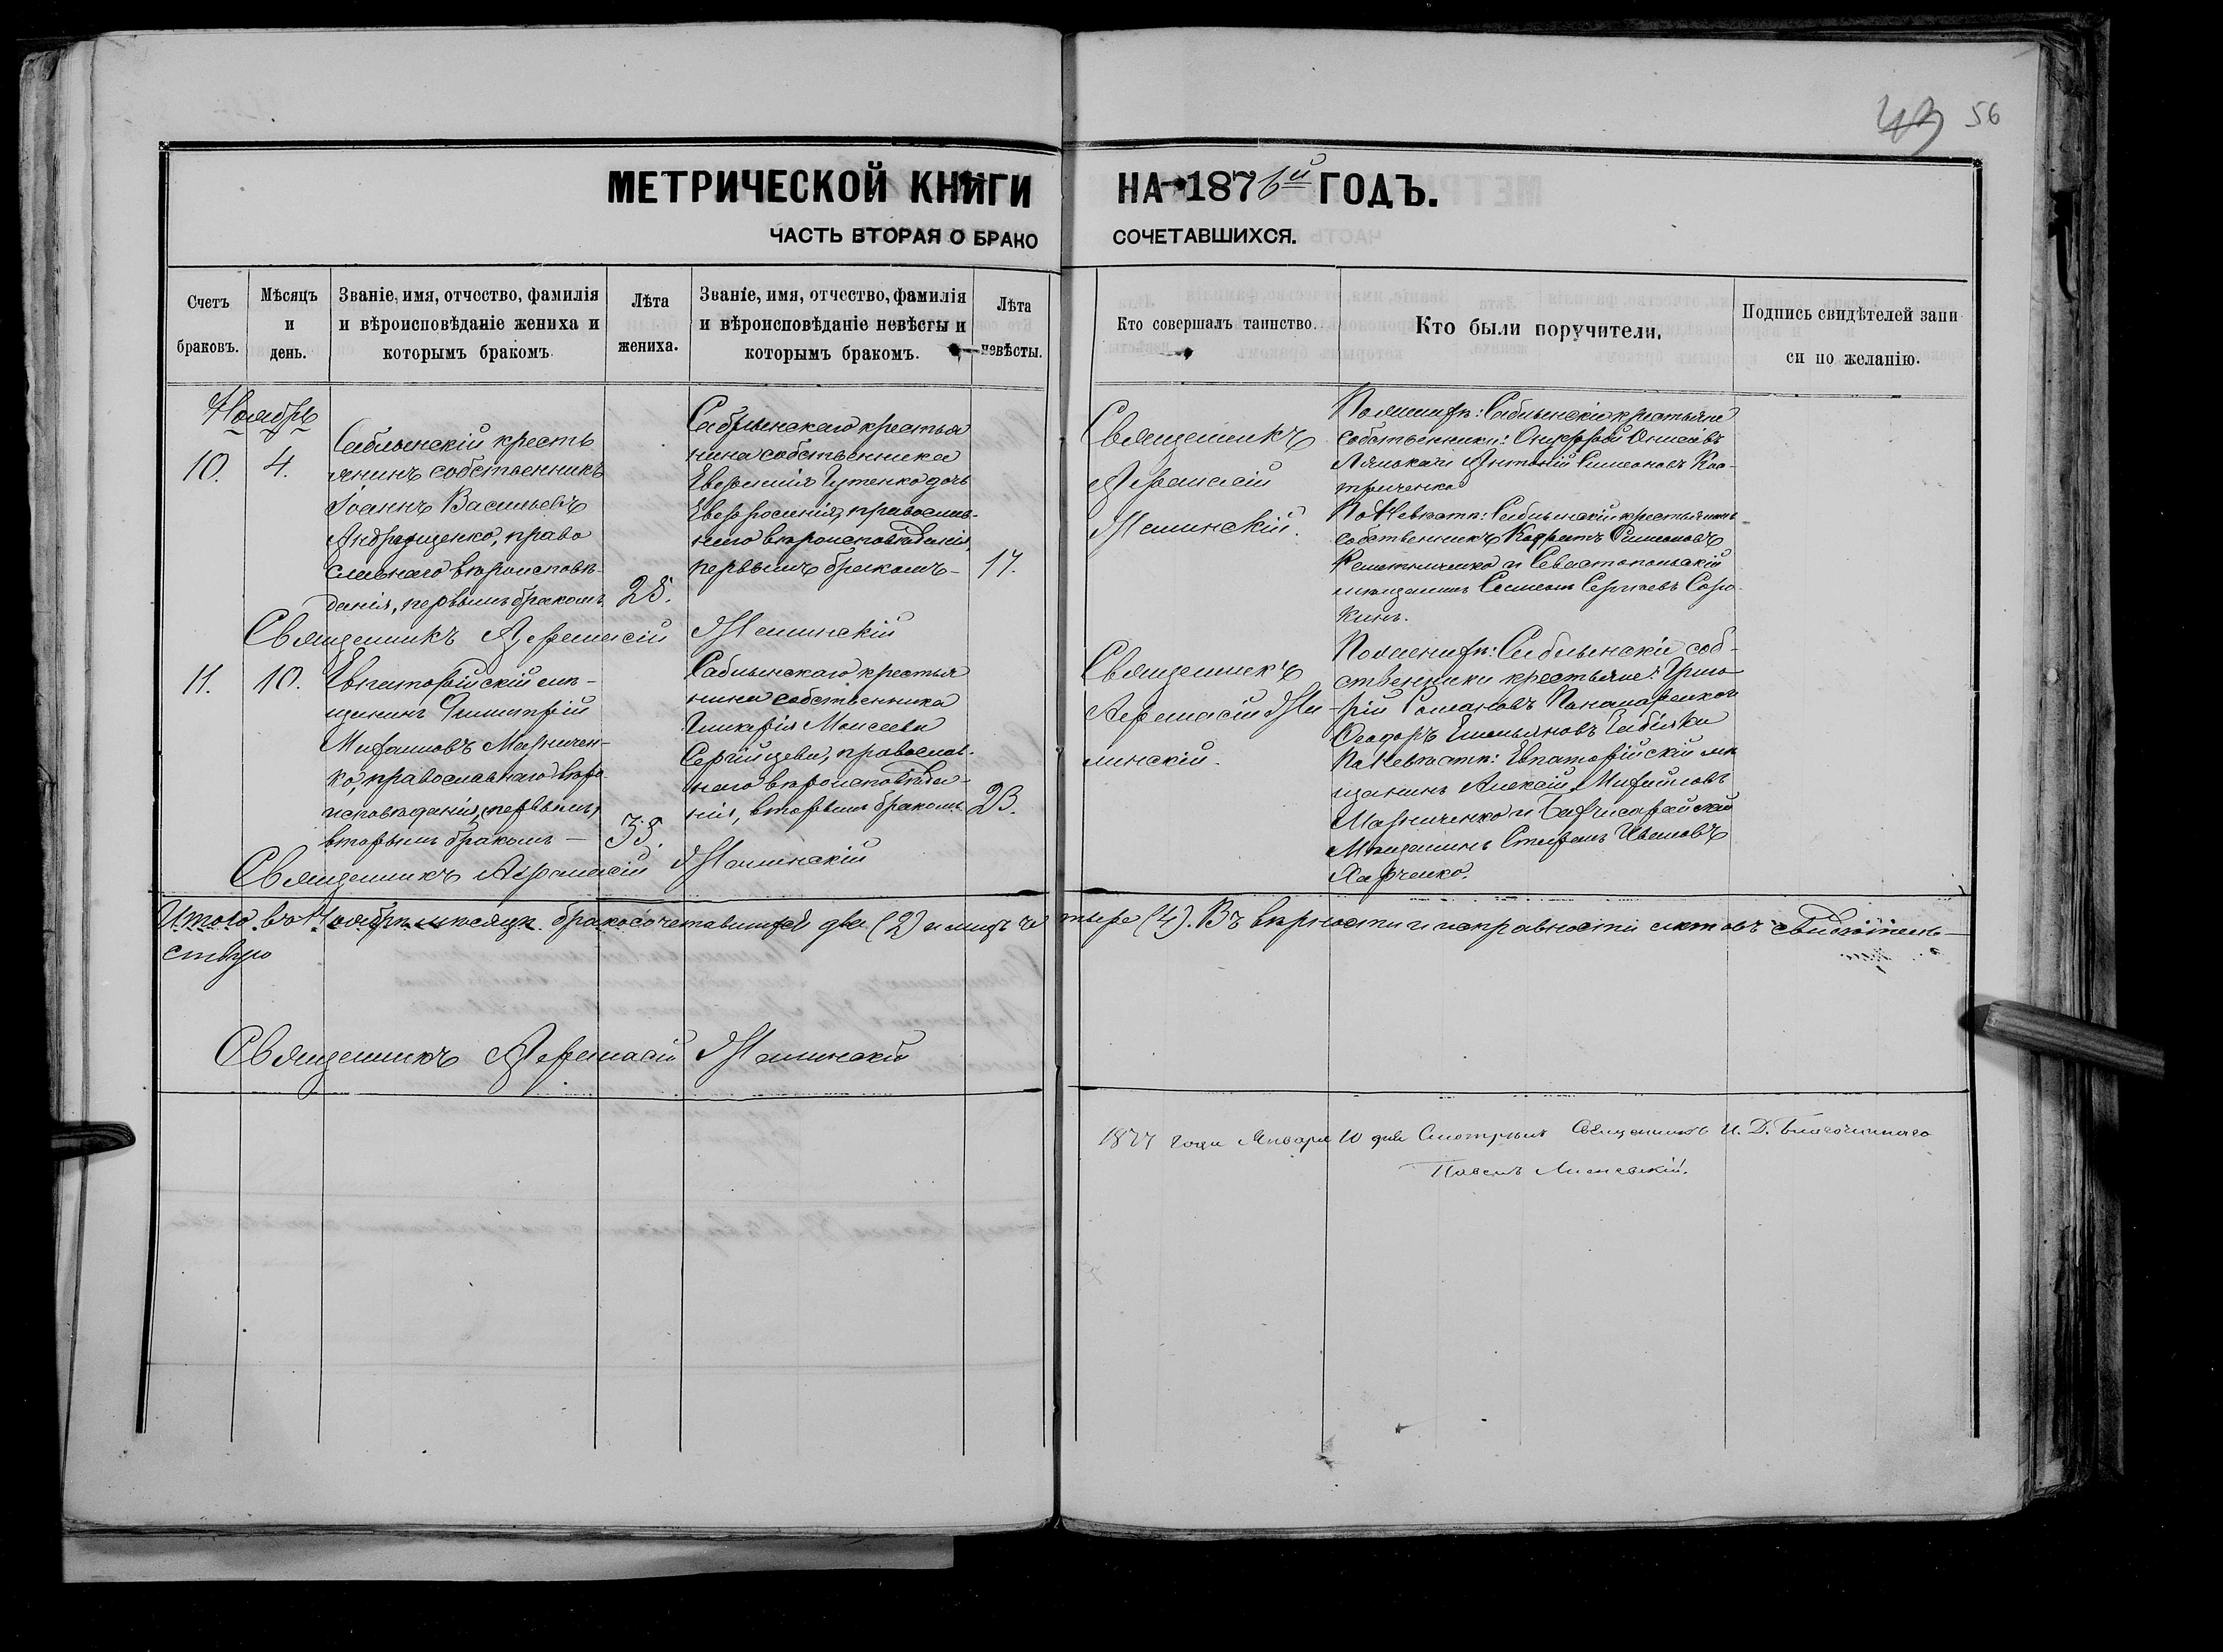 56
МЕТРИЧЕСКОЙ КНИГИ НА 1876й ГОДЪ.
ЧАСТЬ ВТОРАЯ О БРАКОСОЧЕТАВШИХСЯ.
Счетъ браковъ.
Мѣсяцъ и день.
Званіе, имя, отчество, фамилія
и вѣроисповѣданіе жениха и
которымъ бракомъ.
Лѣта жениха.
Званіе, имя, отчество, фамилія
и вѣроисповѣданіе невѣсты и
которымъ бракомъ.
Лѣта невѣсты.
Кто совершалъ таинство.
Кто были поручители.
Подпись свидѣтелей запи
си по желанію.
Ноябрь
10.
4.
Саблынскій кресть
янинъ собственникъ
Іоаннъ Васильевъ
Андрющенко, право
славнаго вѣроисповѣ-
данія, первымъ бракомъ
Саблынскаго крестья
нина собственника
дочь
Евфросинія, православ-
наго вѣроисповѣданія,
первымъ бракомъ-
17.
Священникъ
Афанасій
Поженихѣ: Саблынскіе крестьяне
собственники: Онуфрій
и Антоній Симеоновъ Кос-
триченко
По Невѣстѣ: Саблынскій крестьянинъ
собственникъ Симеоновъ
и Севастопольскій
мѣщанинъ Сергѣевъ Соро-
кинъ.
Священникъ Афанасій
11.
10.
Евпаторійскій мѣ-
щанинъ Димитрій
Михаиловъ Марничен-
ко, православнаго вѣро
исповѣданія, первымъ,
вторымъ бракомъ —
Саблынскаго крестья
нина собственника
Моисеева
православ-
наго вѣроисповѣда-
нія, вторымъ бракомъ
23.
Священникъ
Афанасій
Поженихѣ: Саблынскіе соб-
ственники крестьяне: Григо-
рій Романовъ Понамаренко и
Ѳеодоръ Емельяновъ
По Невѣстѣ: Евпаторійскій мѣ
щанинъ Алексій Михайловъ
Марниченко и Бахчисарайскій
Мѣщанинъ Стефанъ Ивановъ
Харченко.
Священникъ Афанасій
Итого въ Ноябрѣ мѣсяцѣ бракосочетавшихся два (2) и лицъ четыре (4). Въ вѣрности и исправности актовъ свидѣтель-
ствую
Священникъ Афанасій
1877 года Января 10 дня Смотрѣлъ Священникъ И. Д. Благочиннаго
Павелъ